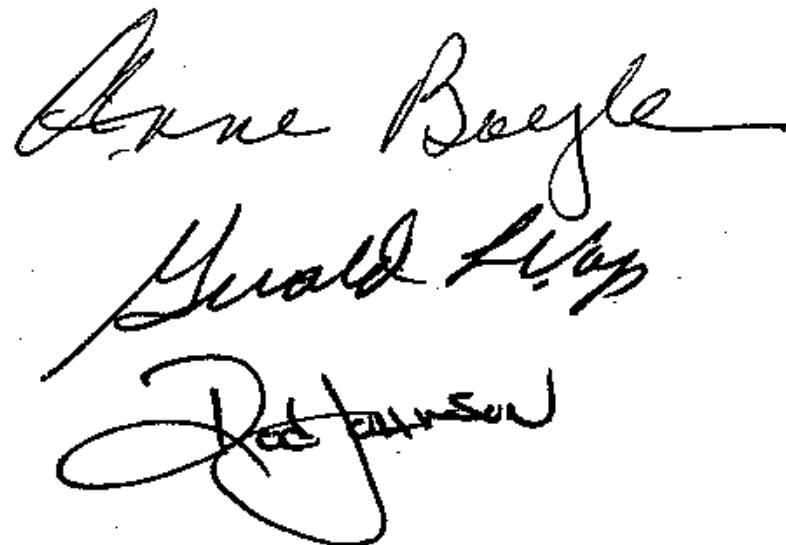 Anne Boyle
Gerald L. Vap
Rod Johnson